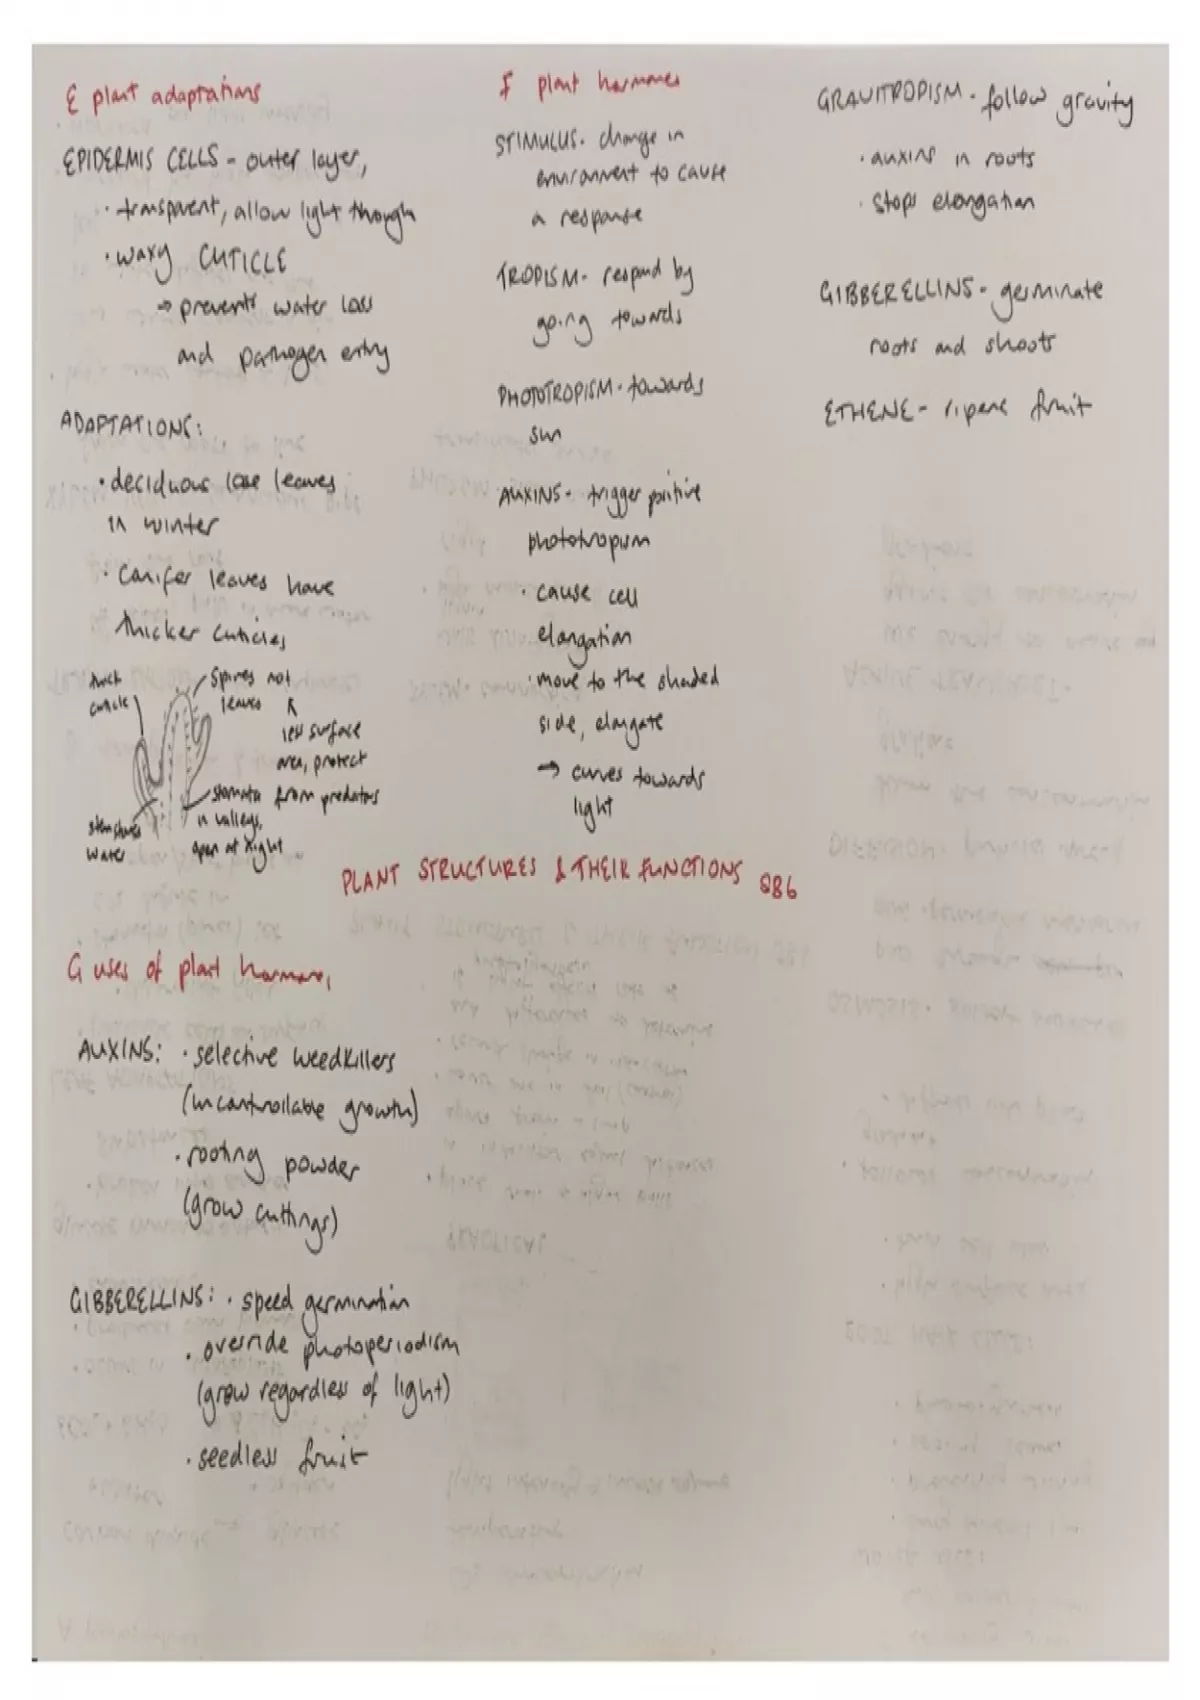 E plant adaptations
EPIDERMIS CELLS - outer layer,
· transparent, allow light though
· waxy CUTICLE
→ prevents water loss
and pathogen entry
ADAPTATIONS:
· deciduous lose leaves
in winter
· Conifer leaves have
thicker cuticles
thick
cuticle
spines not
leaves
less surface
area, protect
from predators
stomata
in valleys,
open at night
stem stores
water
F plant hormones
STIMULUS - change in
environment to cause
a response
TROPISM - respond by
going towards
PHOTOTROPISM - towards
sun
AUXINS - trigger positive
phototropism
· cause cell
elongation
· move to the shaded
side, elongate
→ curves towards
light
GRAVITROPISM - follow gravity
· auxins in roots
· stops elongation
GIBBERELLINS - germinate
roots and shoots
ETHENE - ripens fruit
PLANT STRUCTURES & THEIR FUNCTIONS SB6
G uses of plant hormones
AUXINS: · selective weedkillers
(uncontrollable growth)
· rooting powder
(grow cuttings)
GIBBERELLINS: · speed germination
· override photoperiodism
(grow regardless of light)
· seedless fruit